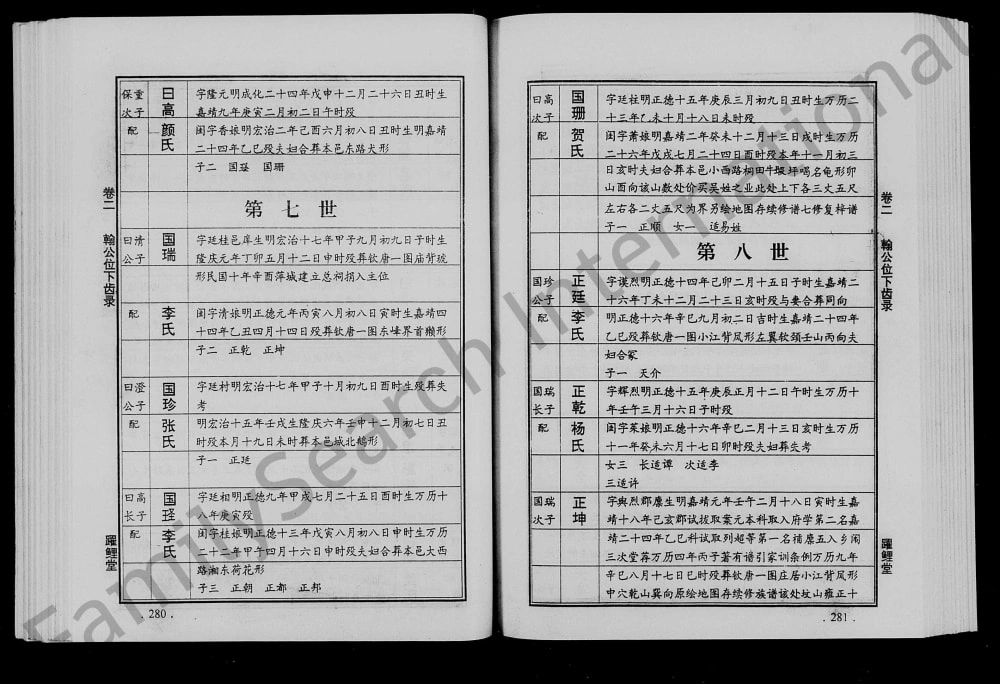 卷二　翰公位下齿录
躍鲤堂
保重
次子
日高
字隆元明成化二十四年戊申十二月二十六日丑时生
嘉靖九年庚寅二月初二日午时殁
配
颜氏
闺字香娘明宏治二年己酉六月初八日丑时生明嘉靖
二十四年乙巳殁夫妇合葬本邑东路犬形
子二　国珽　国珊
第七世
日清
公子
国瑞
字廷桂邑庠生明宏治十七年甲子九月初九日子时生
隆庆元年丁卯五月十二日申时殁葬钦唐一图庙背琥
形民国十年辛酉萍城建立总祠捐入主位
配
李氏
闺字清娘明正德元年丙寅八月初八日寅时生嘉靖四
十四年乙丑四月十四日殁葬钦唐一图东峰界首獭形
子二　正乾　正坤
日澄
公子
国珍
字廷村明宏治十七年甲子十月初九日酉时生殁葬失
考
配
张氏
明宏治十五年壬戌生隆庆六年壬申十二月初七日丑
时殁本月十九日未时葬本邑城北鹅形
子一　正廷
日高
长子
国珽
字廷相明正德九年甲戌七月二十五日酉时生万历十
八年庚寅殁
配
李氏
闺字桂娘明正德十三年戊寅八月初八日申时生万历
二十二年甲午四月十六日申时殁夫妇合葬本邑大西
路湘东荷花形
子三　正朝　正都　正邦
. 280 .
日高
次子
国珊
字廷柱明正德十五年庚辰三月初九日丑时生万历二
十三年乙未十月十八日未时殁
配
贺氏
闺字萧娘明嘉靖二年癸未十二月十三日戌时生万历
二十六年戊戌七月二十四日酉时殁本年十一月初三
日亥时夫妇合葬本邑小西路桐田牛堰坪喝名龟形卯
山酉向该山数处价买吴姓之业此处上下各三丈五尺
左右各二丈五尺为界另绘地图存续修谱七修复梓谱
子一　正顺　女一　适易姓
第八世
国珍
公子
正廷
字谟烈明正德十四年己卯二月十五日子时生嘉靖二
十六年丁未十二月二十三日亥时殁与妻合葬同向
配
李氏
明正德十六年辛巳九月初二日吉时生嘉靖二十四年
乙巳殁葬钦唐一图小江背凤形左翼软颈壬山丙向夫
妇合冢
子一　天介
国瑞
长子
正乾
字辉烈明正德十五年庚辰正月十二日午时生万历十
年壬午三月十六日子时殁
配
杨氏
闺字茱娘明正德十六年辛巳二月十三日亥时生万历
十一年癸未六月十七日卯时殁夫妇葬失考
女三　长适谭　次适李
三适许
国瑞
次子
正坤
字舆烈郡廪生明嘉靖元年壬午二月十八日寅时生嘉
靖十八年己亥郡试拔取案元本科取入府学第二名嘉
靖二十四年乙巳科试取列超等第一名補廪五入乡闱
三次堂荐万历四年丙子著有谱引家训条例万历九年
辛巳八月十七日巳时殁葬钦唐一图庄居小江背凤形
中穴乾山巽向原绘地图存续修族谱该处坟山雍正十
卷二　翰公位下齿录
躍鲤堂
. 281 .
FamilySearch International